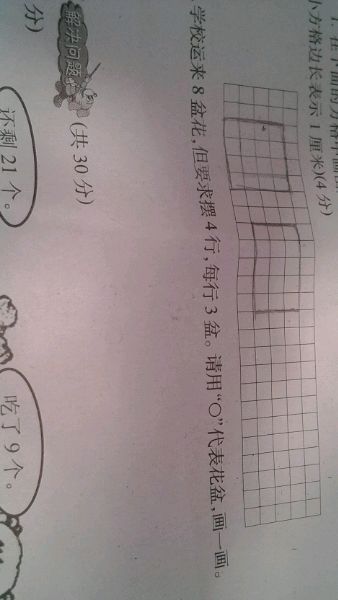 1. 在下面的方格中画
小方格边长表示 1 厘米)(4 分)
学校运来 8 盆花，但要求摆 4 行，每行 3 盆。请用“○”代表花盆，画一画。
解决问题。(共 30 分)
分)
还剩 21 个。
吃了 9 个。